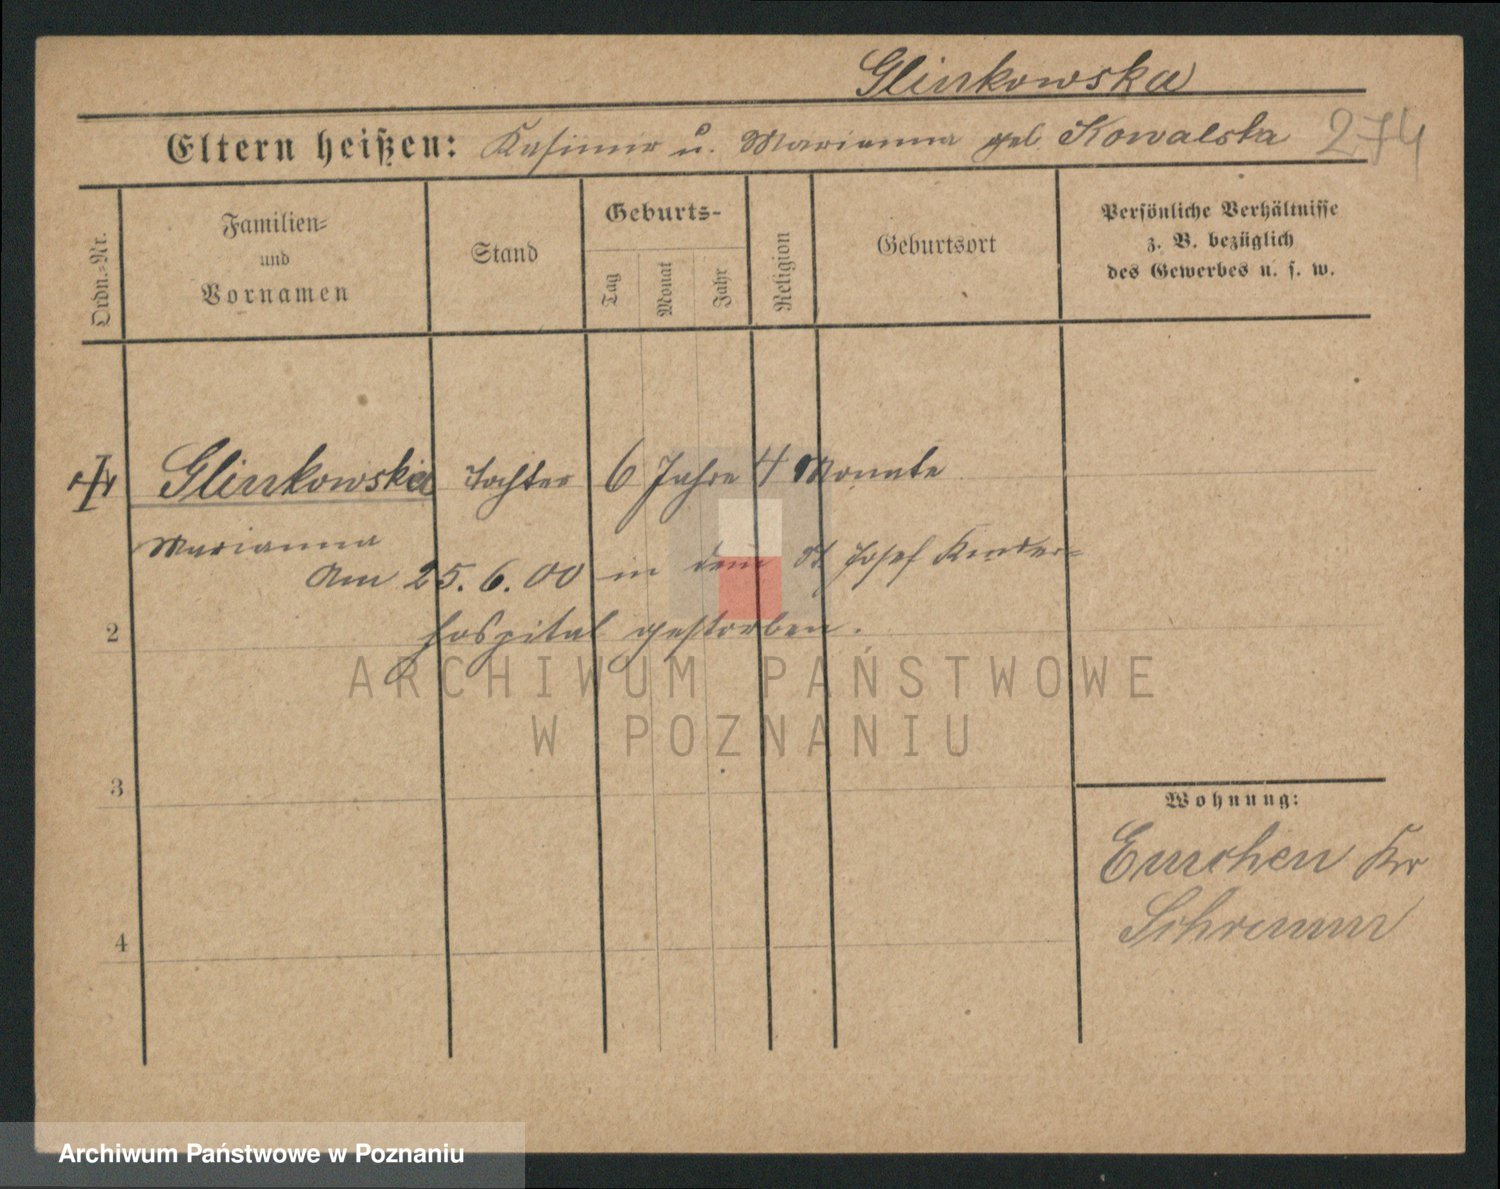 Glinkowska
Eltern heißen: Kasimir u. Marianna geb Kowalska 274
Ordn.-Nr.
Familien-
und
Vornamen
Stand
Geburts-
Tag
Monat
Jahr
Religion
Geburtsort
Persönliche Verhältnisse
z. B. bezüglich
des Gewerbes u. s. w.
Glinkowska Tochter 6 Jahre 4 Monate
Marianna
Am 25.6.00 in dem St Josef Kinder-
2
hospital gestorben.
ARCHIWUM PAŃSTWOWE
W POZNANIU
3
Wohnung:
Kr
Schrimm
4
Archiwum Państwowe w Poznaniu